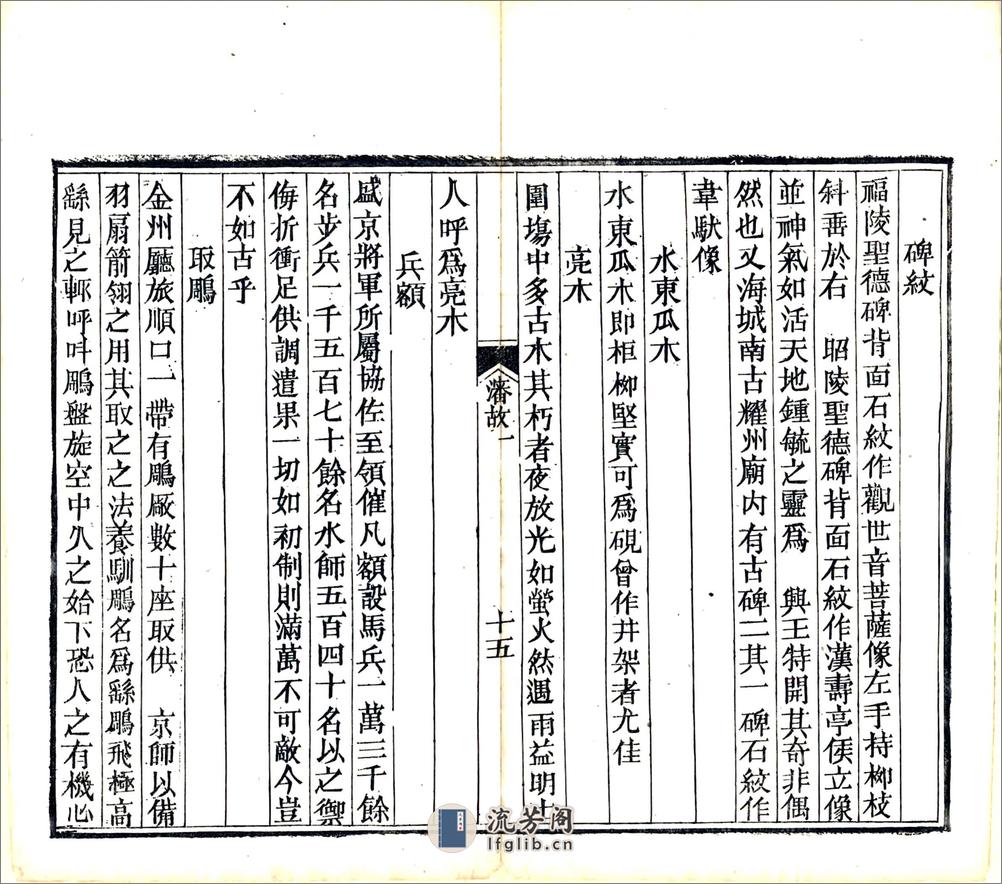 碑紋
福陵聖德碑背面石紋作觀世音菩薩像左手持柳枝
斜垂於右　昭陵聖德碑背面石紋作漢壽亭侯立像
並神氣如活天地鍾毓之靈爲　興王特開其奇非偶
然也又海城南古耀州廟内有古碑二其一碑石紋作
韋馱像
水東瓜木
水東瓜木即柜柳堅實可爲硯曾作井架者尤佳
亮木
圍塲中多古木其朽者夜放光如螢火然遇雨益明土
瀋故一
十五
人呼爲亮木
兵額
盛京將軍所屬協佐至領催凡額設馬兵一萬三千餘
名步兵一千五百七十餘名水師五百四十名以之禦
侮折衝足供調遣果一切如初制則滿萬不可敵今豈
不如古乎
取鵰
金州廳旅順口一帶有鵰厰數十座取供　京師以備
羽扇箭翎之用其取之之法養馴鵰名爲繇鵰飛極高
繇見之輒呼呌鵰盤旋空中久之始下恐人之有機心
流芳阁
lfglib.cn